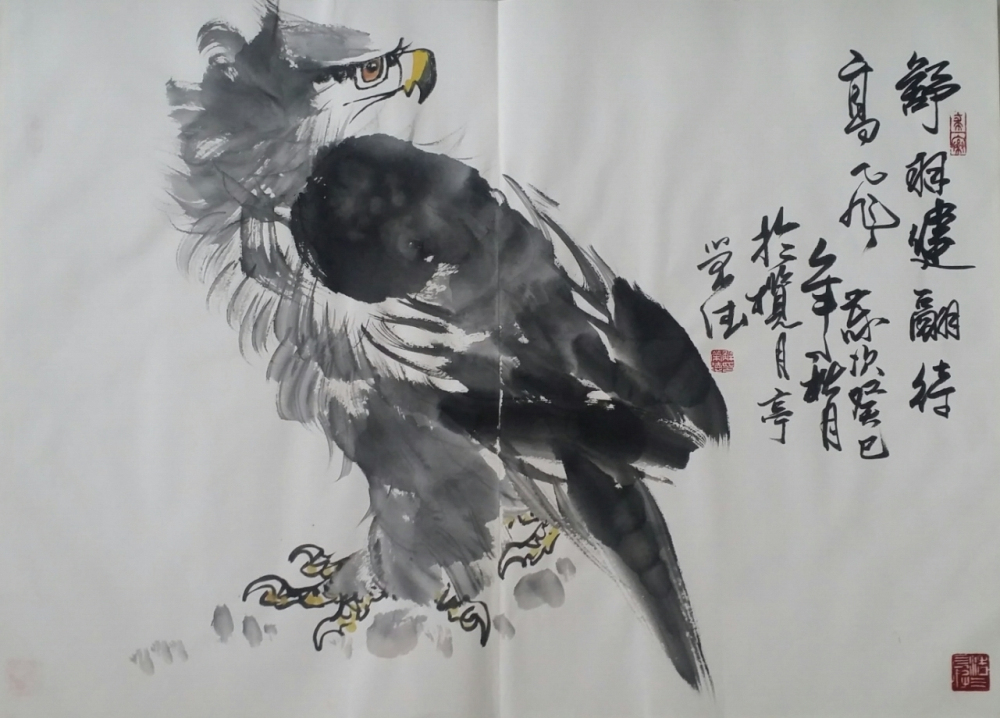 舒羽健翮待
高飞
岁次癸巳
年秋月
于揽月亭
荣德